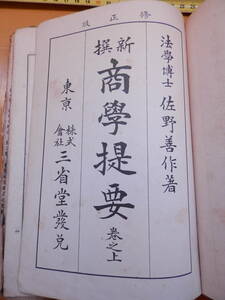 修正版
法學博士 佐野善作著
新撰 商學提要 卷之上
東京 株式會社 三省堂發兌